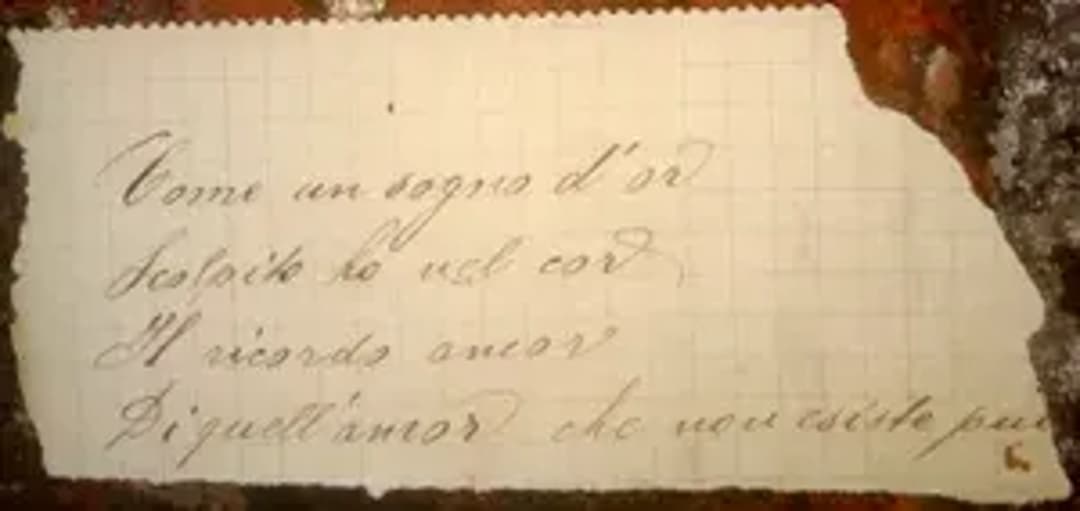 Come un sogno d'or
Scolpito ho nel cor
Il ricordo ancor
Di quell'amor che non esiste più